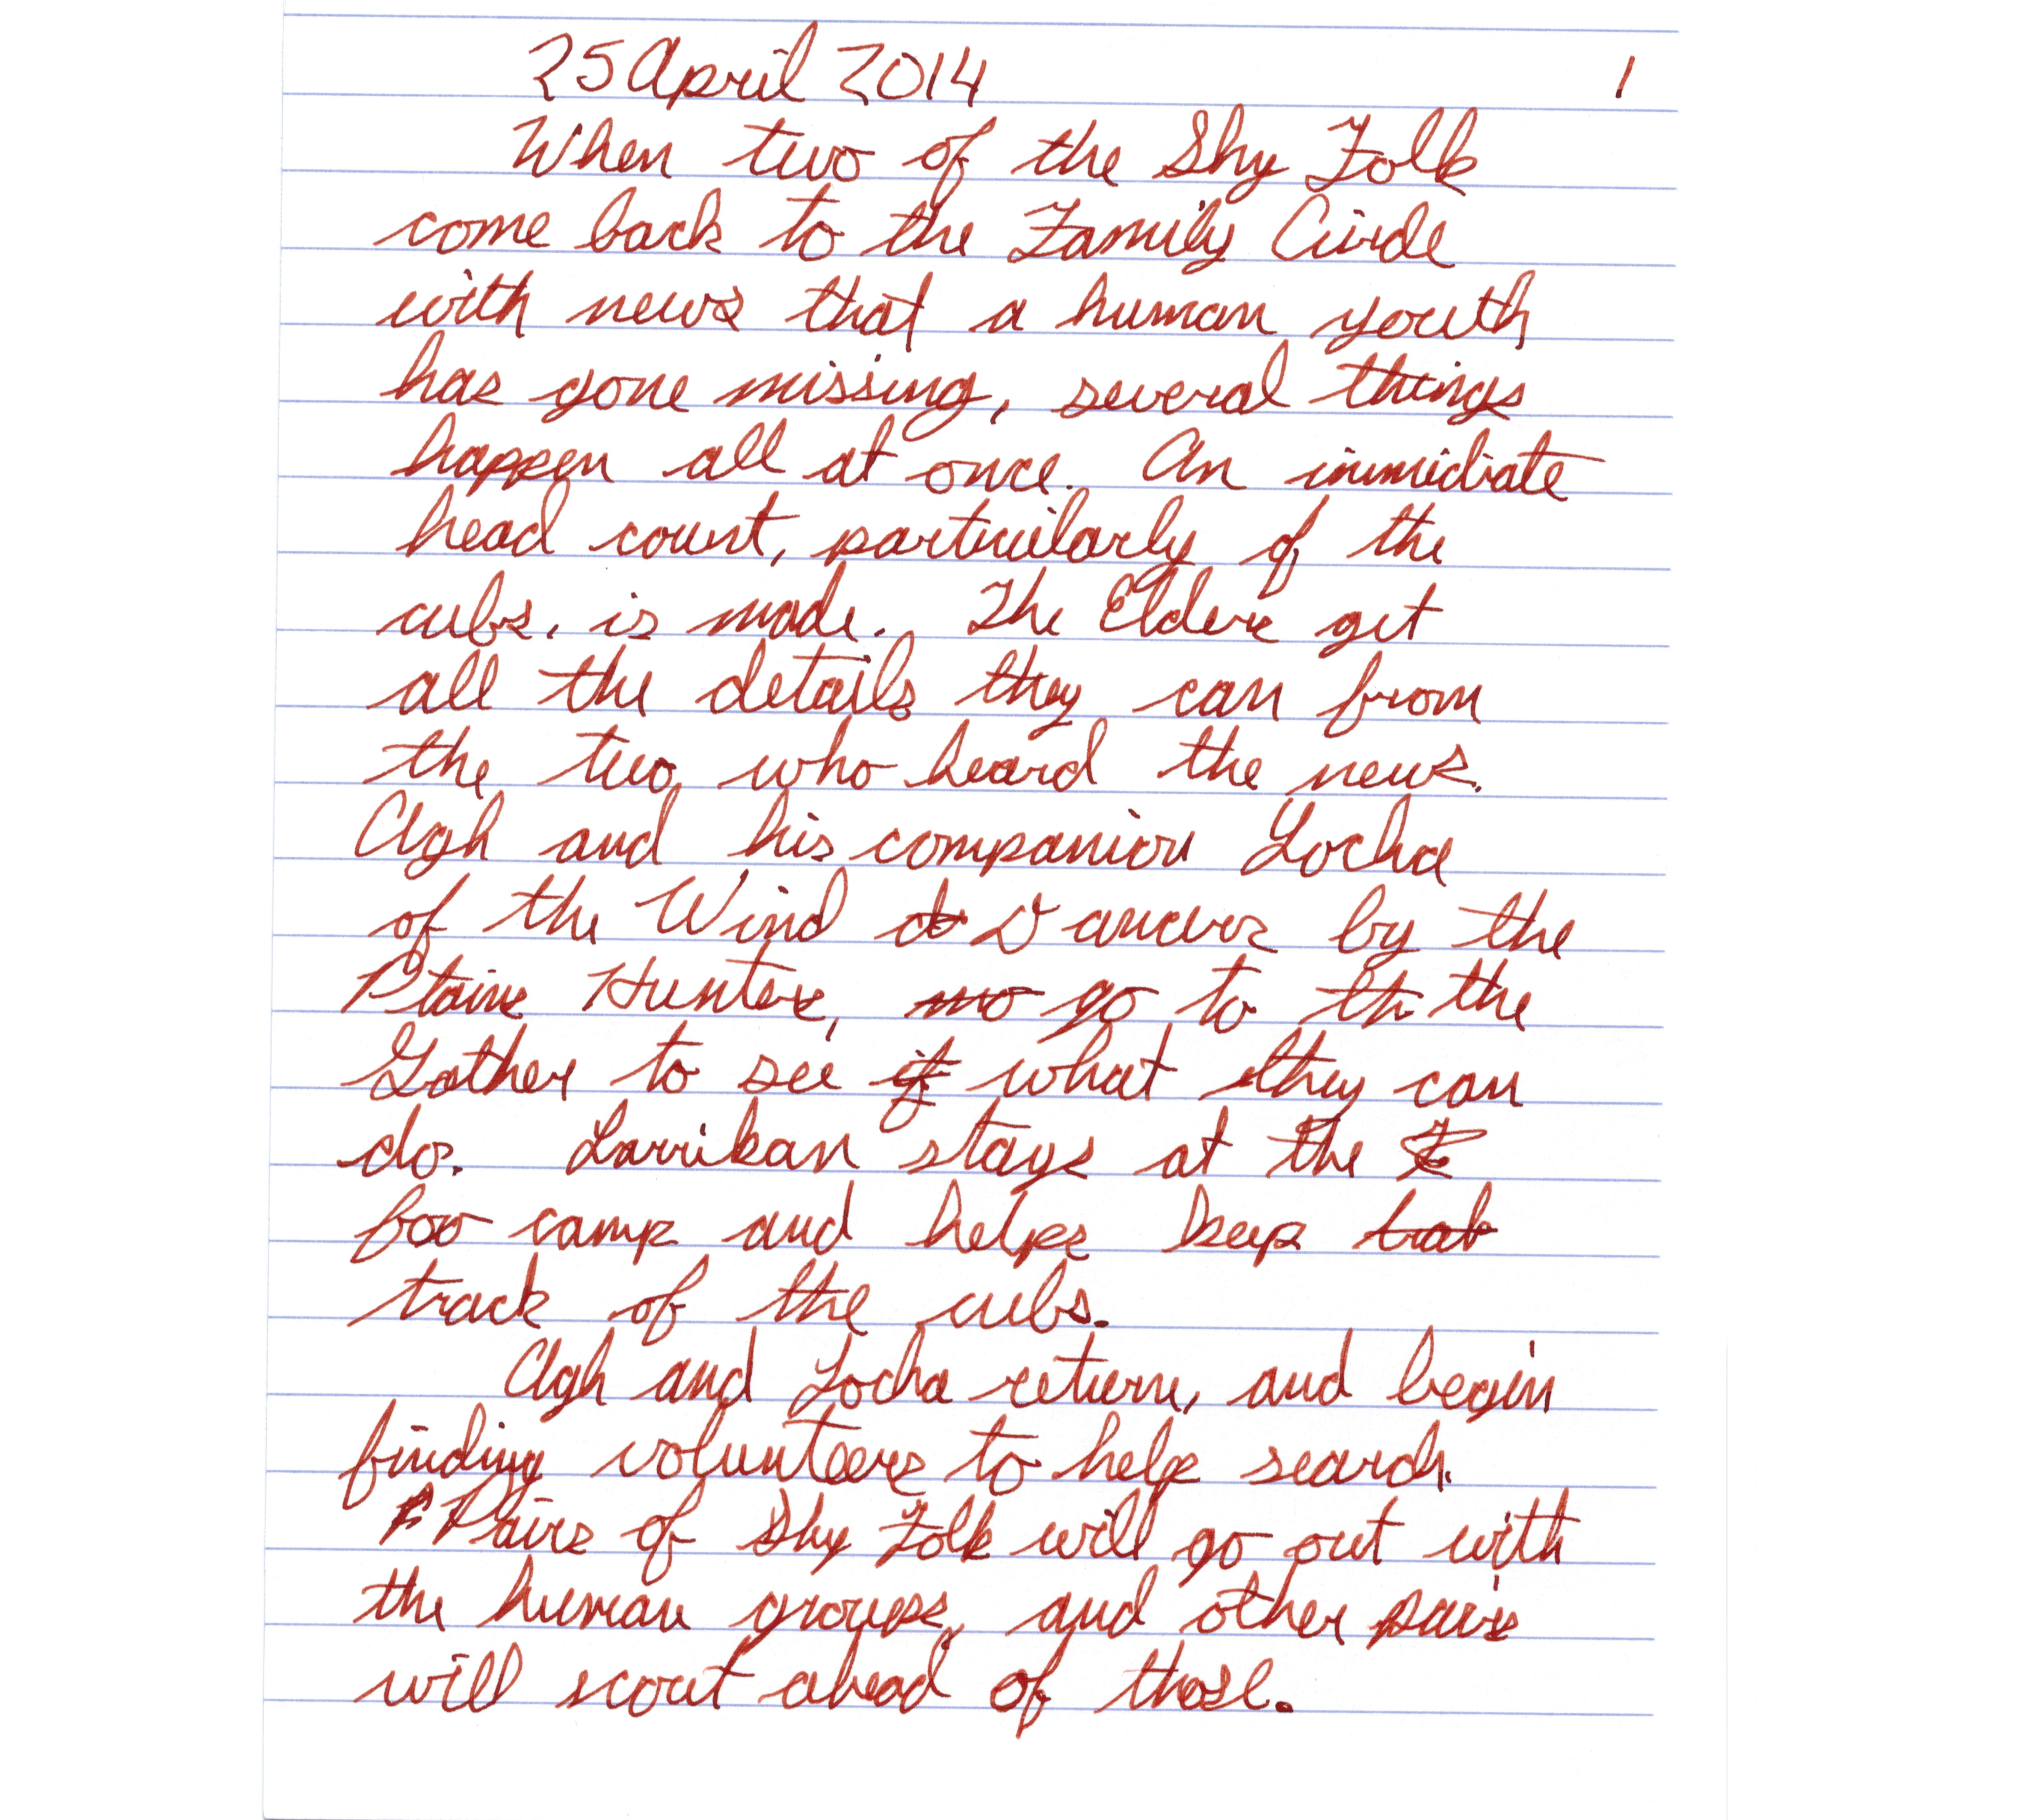 25 April 2014 1
When two of the Shy Folk
come back to the Family Circle
with news that a human youth
has gone missing, several things
happen all at once. An immediate
head count, particularly of the
cubs, is made. The Elders get
all the details they can from
the two who heard the news.
Agh and his companion Locha
of the Wind d Dancers by the
Plains Hunters, mo go to th the
Gather to see if what they can
do. Larrikan stays at the
foo camp and helps keep trak
track of the cubs.
Agh and Locha return, and begin
finding volunteers to help search.
P Pairs of Shy Folk will go out with
the human groups, and other pairs
will scout ahead of those.